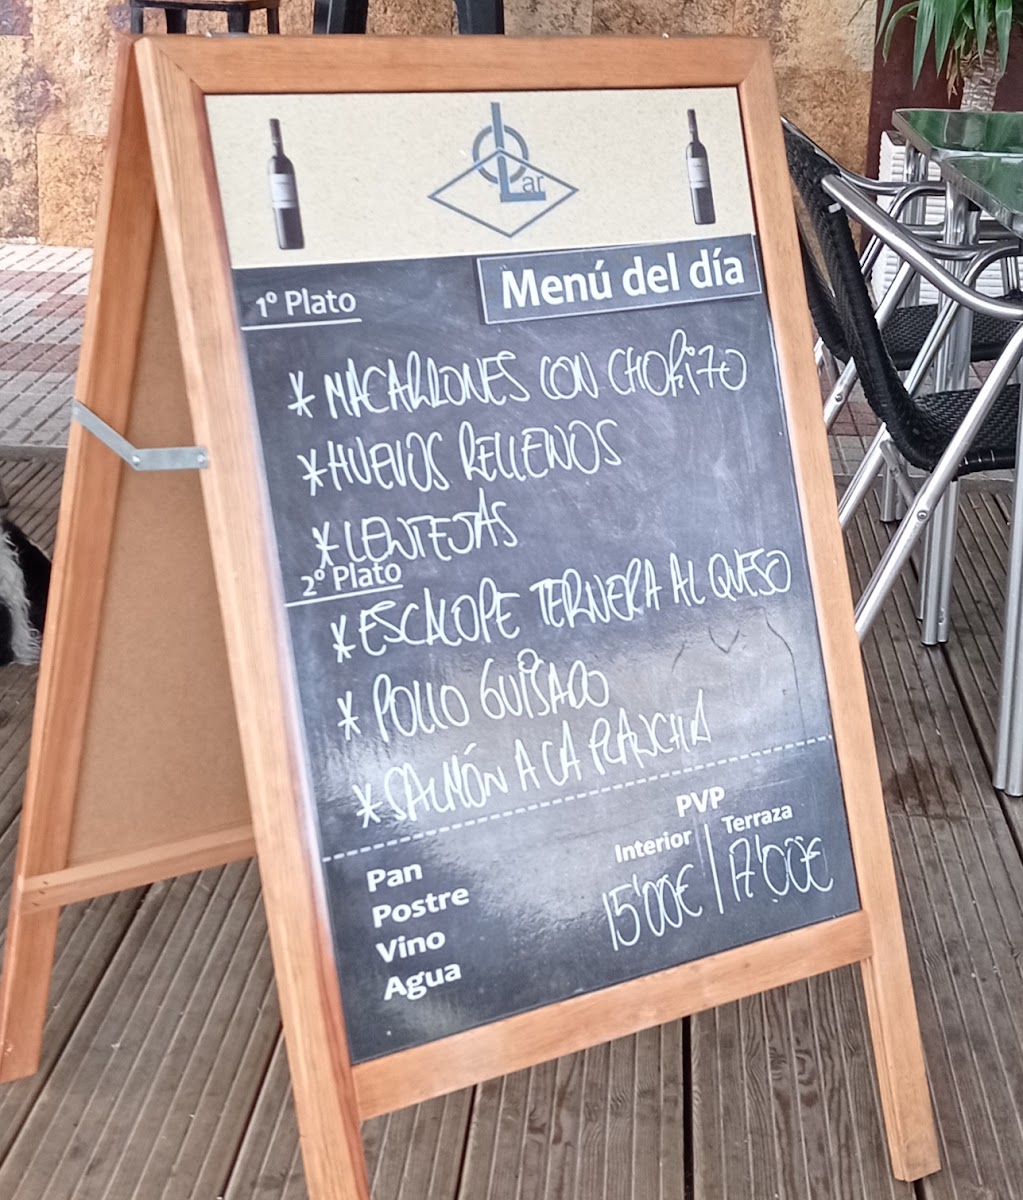 O Lar
Menú del día
1º Plato
* MACARRONES CON CHORIZO
* HUEVOS RELLENOS
* LENTEJAS
2º Plato
* ESCALOPE TERNERA AL QUESO
* POLLO GUISADO
* SALMÓN A LA PLANCHA
Pan
Postre
Vino
Agua
PVP
Interior Terraza
15'00€ | 17'00€